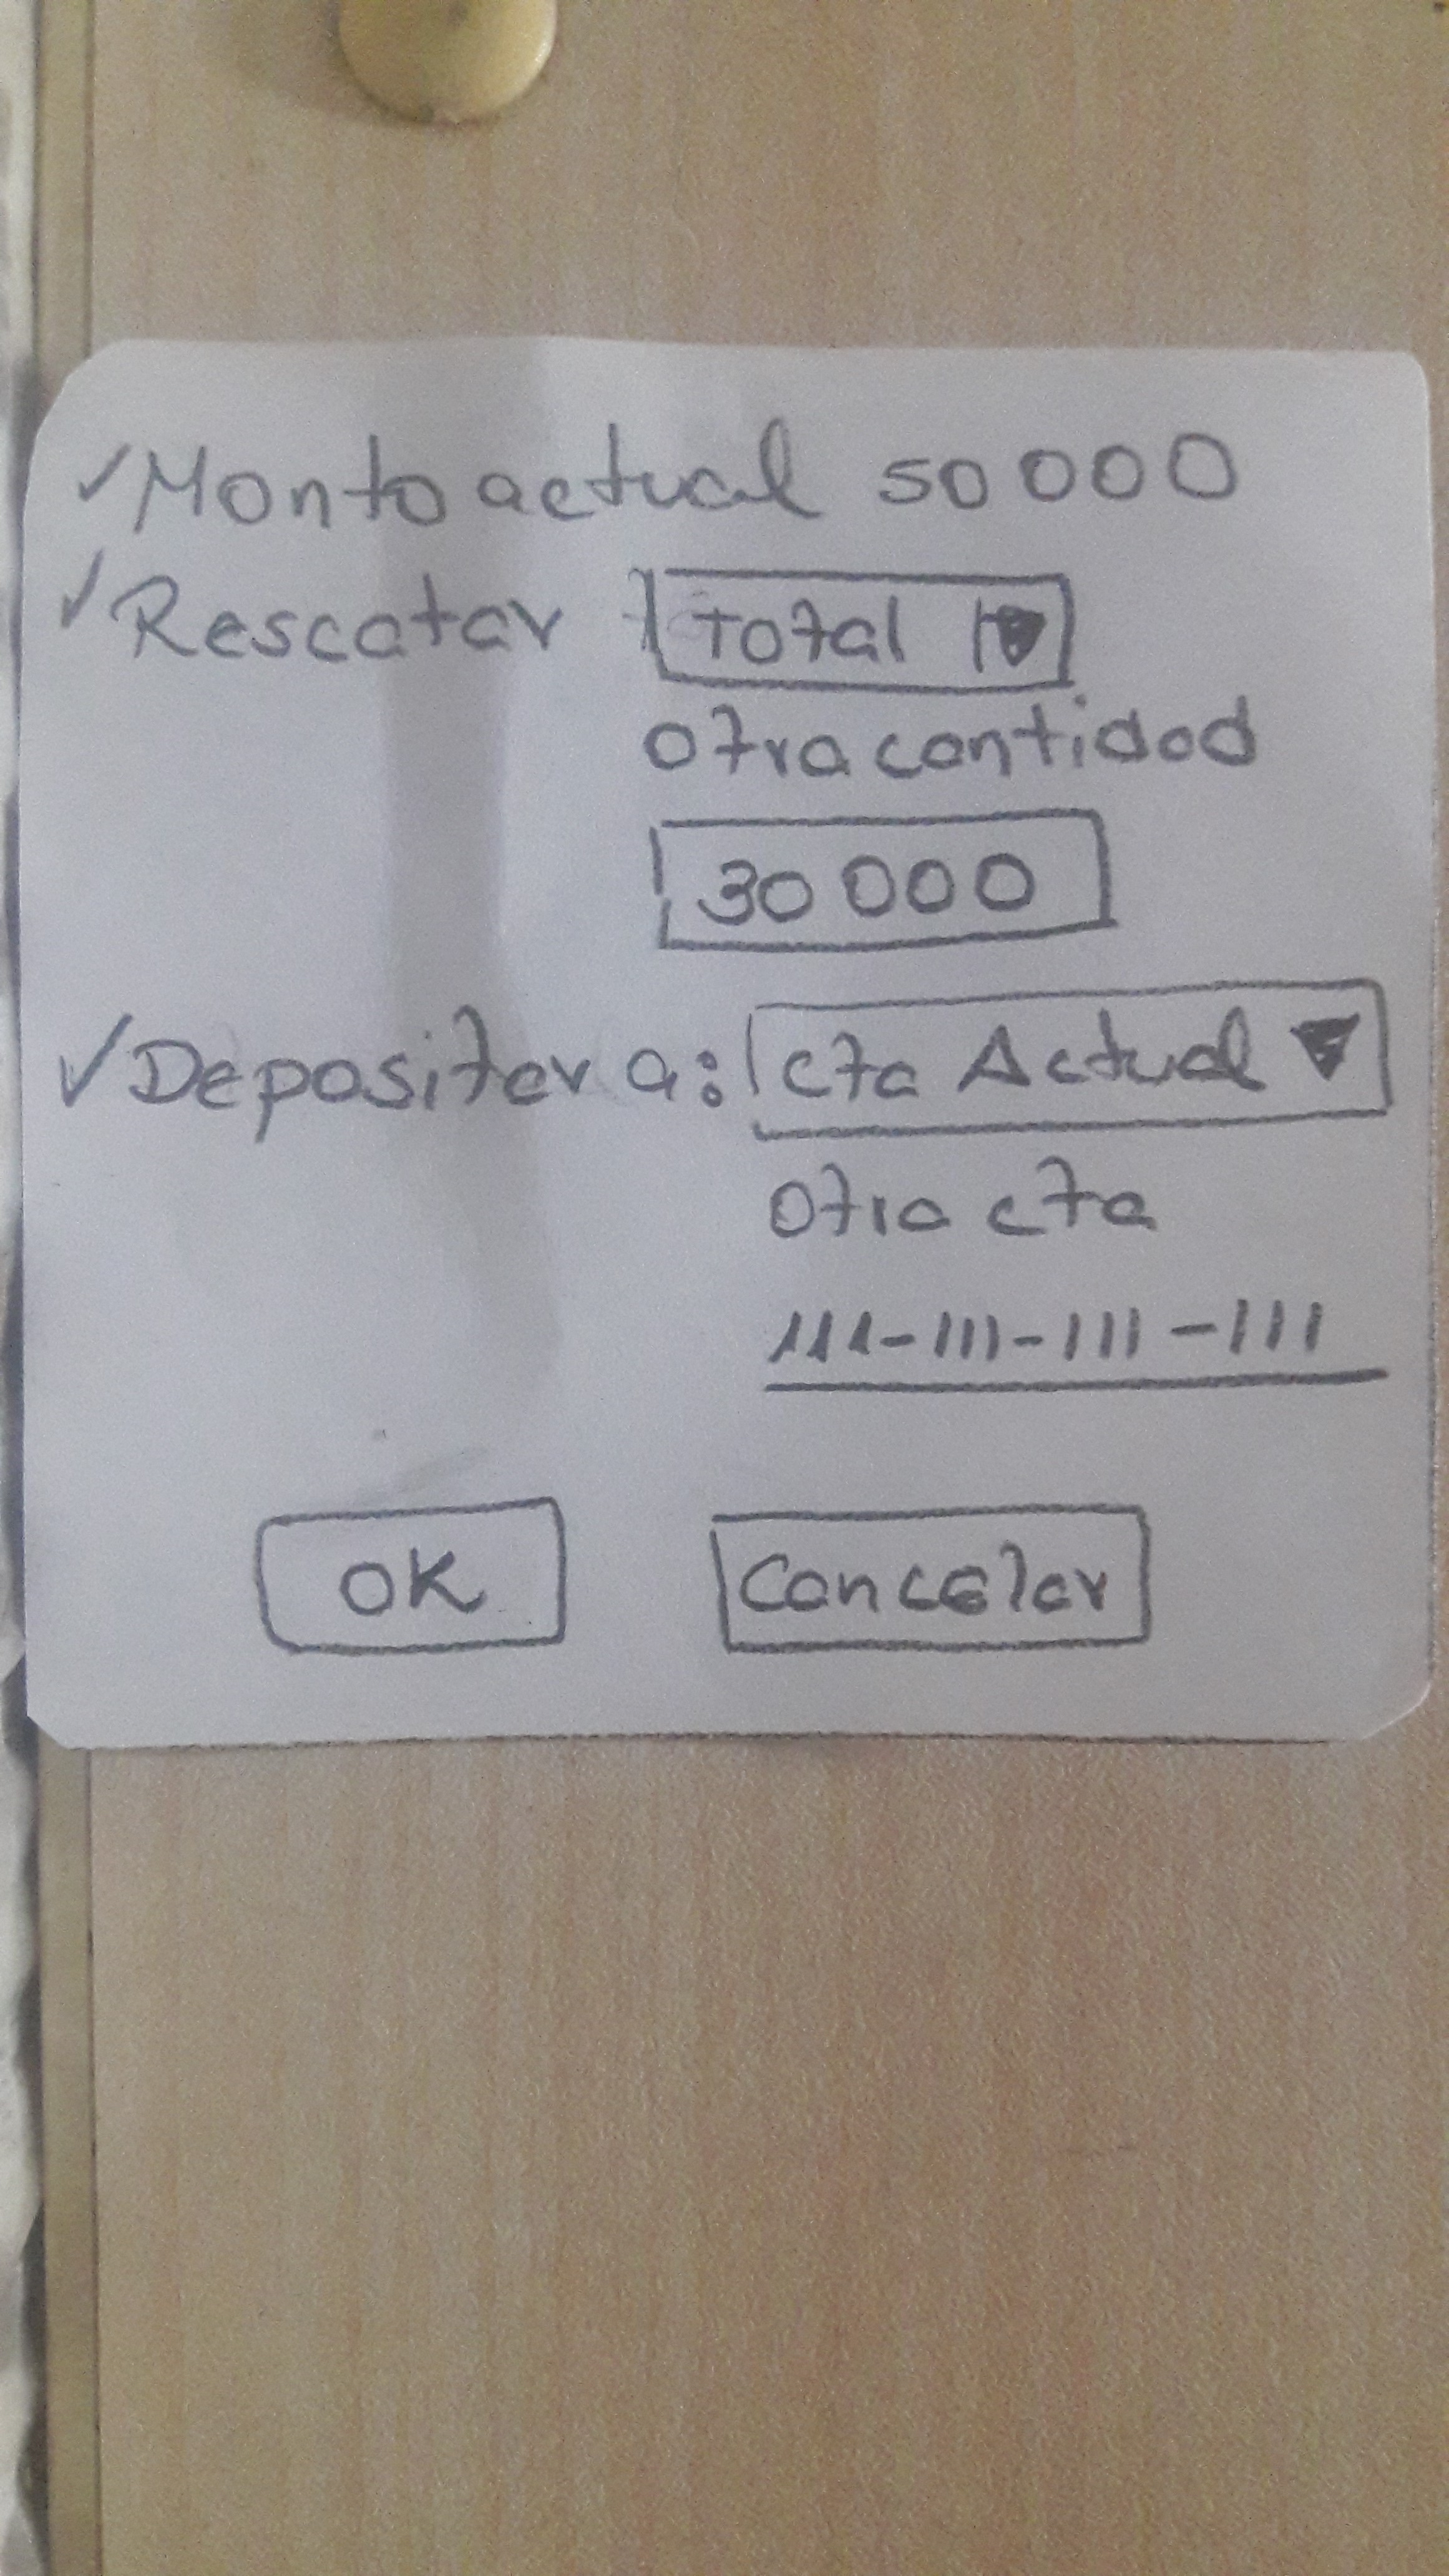 ✓ Monto actual 50 000
✓ Rescatar Total ▼
Otra cantidad
30 000
✓ Depositar a: cta Actual ▼
Otra cta
111-111-111-111
OK Cancelar